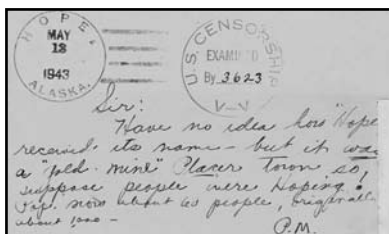 HOPE,
MAY
13
1943
ALASKA.
U.S. CENSORSHIP
EXAMINED
By 3623
Sir:
Have no idea how "Hope
received its name - but it was
a "gold-mine" Placer town so,
suppose people were Hoping.
Pop. now about 60 people, originally
about 1000 -
P.M.